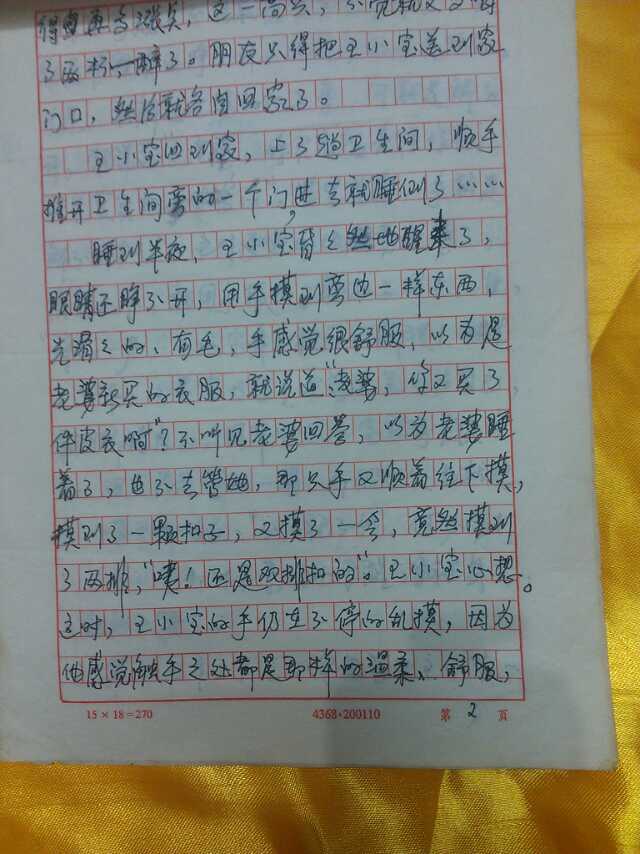 得再多涨点，这一高兴，不觉就又又喝
了两杯，醉了。朋友只得把王小宝送到家
门口，然后就各自回家了。
王小宝回到家，上了趟卫生间，顺手
推开卫生间旁的一个门进去就睡倒了……
睡到半夜，王小宝昏々然地醒来了，
眼睛还睁不开，用手摸到旁边一样东西，
光滑々的、有毛，手感觉很舒服，以为是
老婆新买的衣服，就说道“老婆，你又买了
件皮衣啊”？不听见老婆回答，以为老婆睡
着了，也不去管她，那只手又顺着往下摸，
摸到了一颗扣子，又摸了一会，竟然摸到
了两排，“噢！还是双排扣的”。王小宝心想。
这时，王小宝的手仍在不停的乱摸，因为
他感觉触手之处都是那样的温柔、舒服，
15×18=270 4368·200110 第 2 页